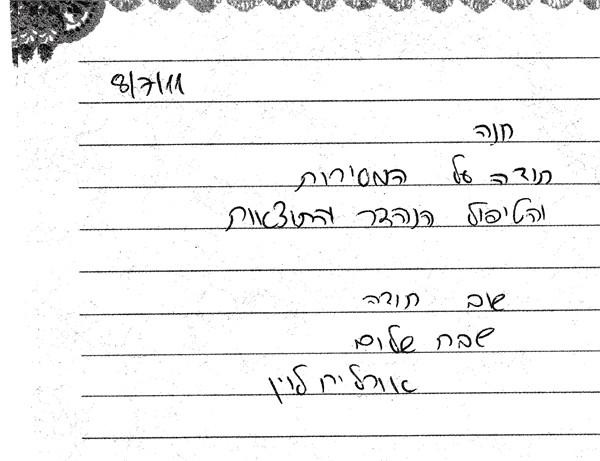 8/7/11
חנה
תודה על המסירות
והטיפול הנהדר והתוצאות
שוב תודה
שבת שלום
לוין